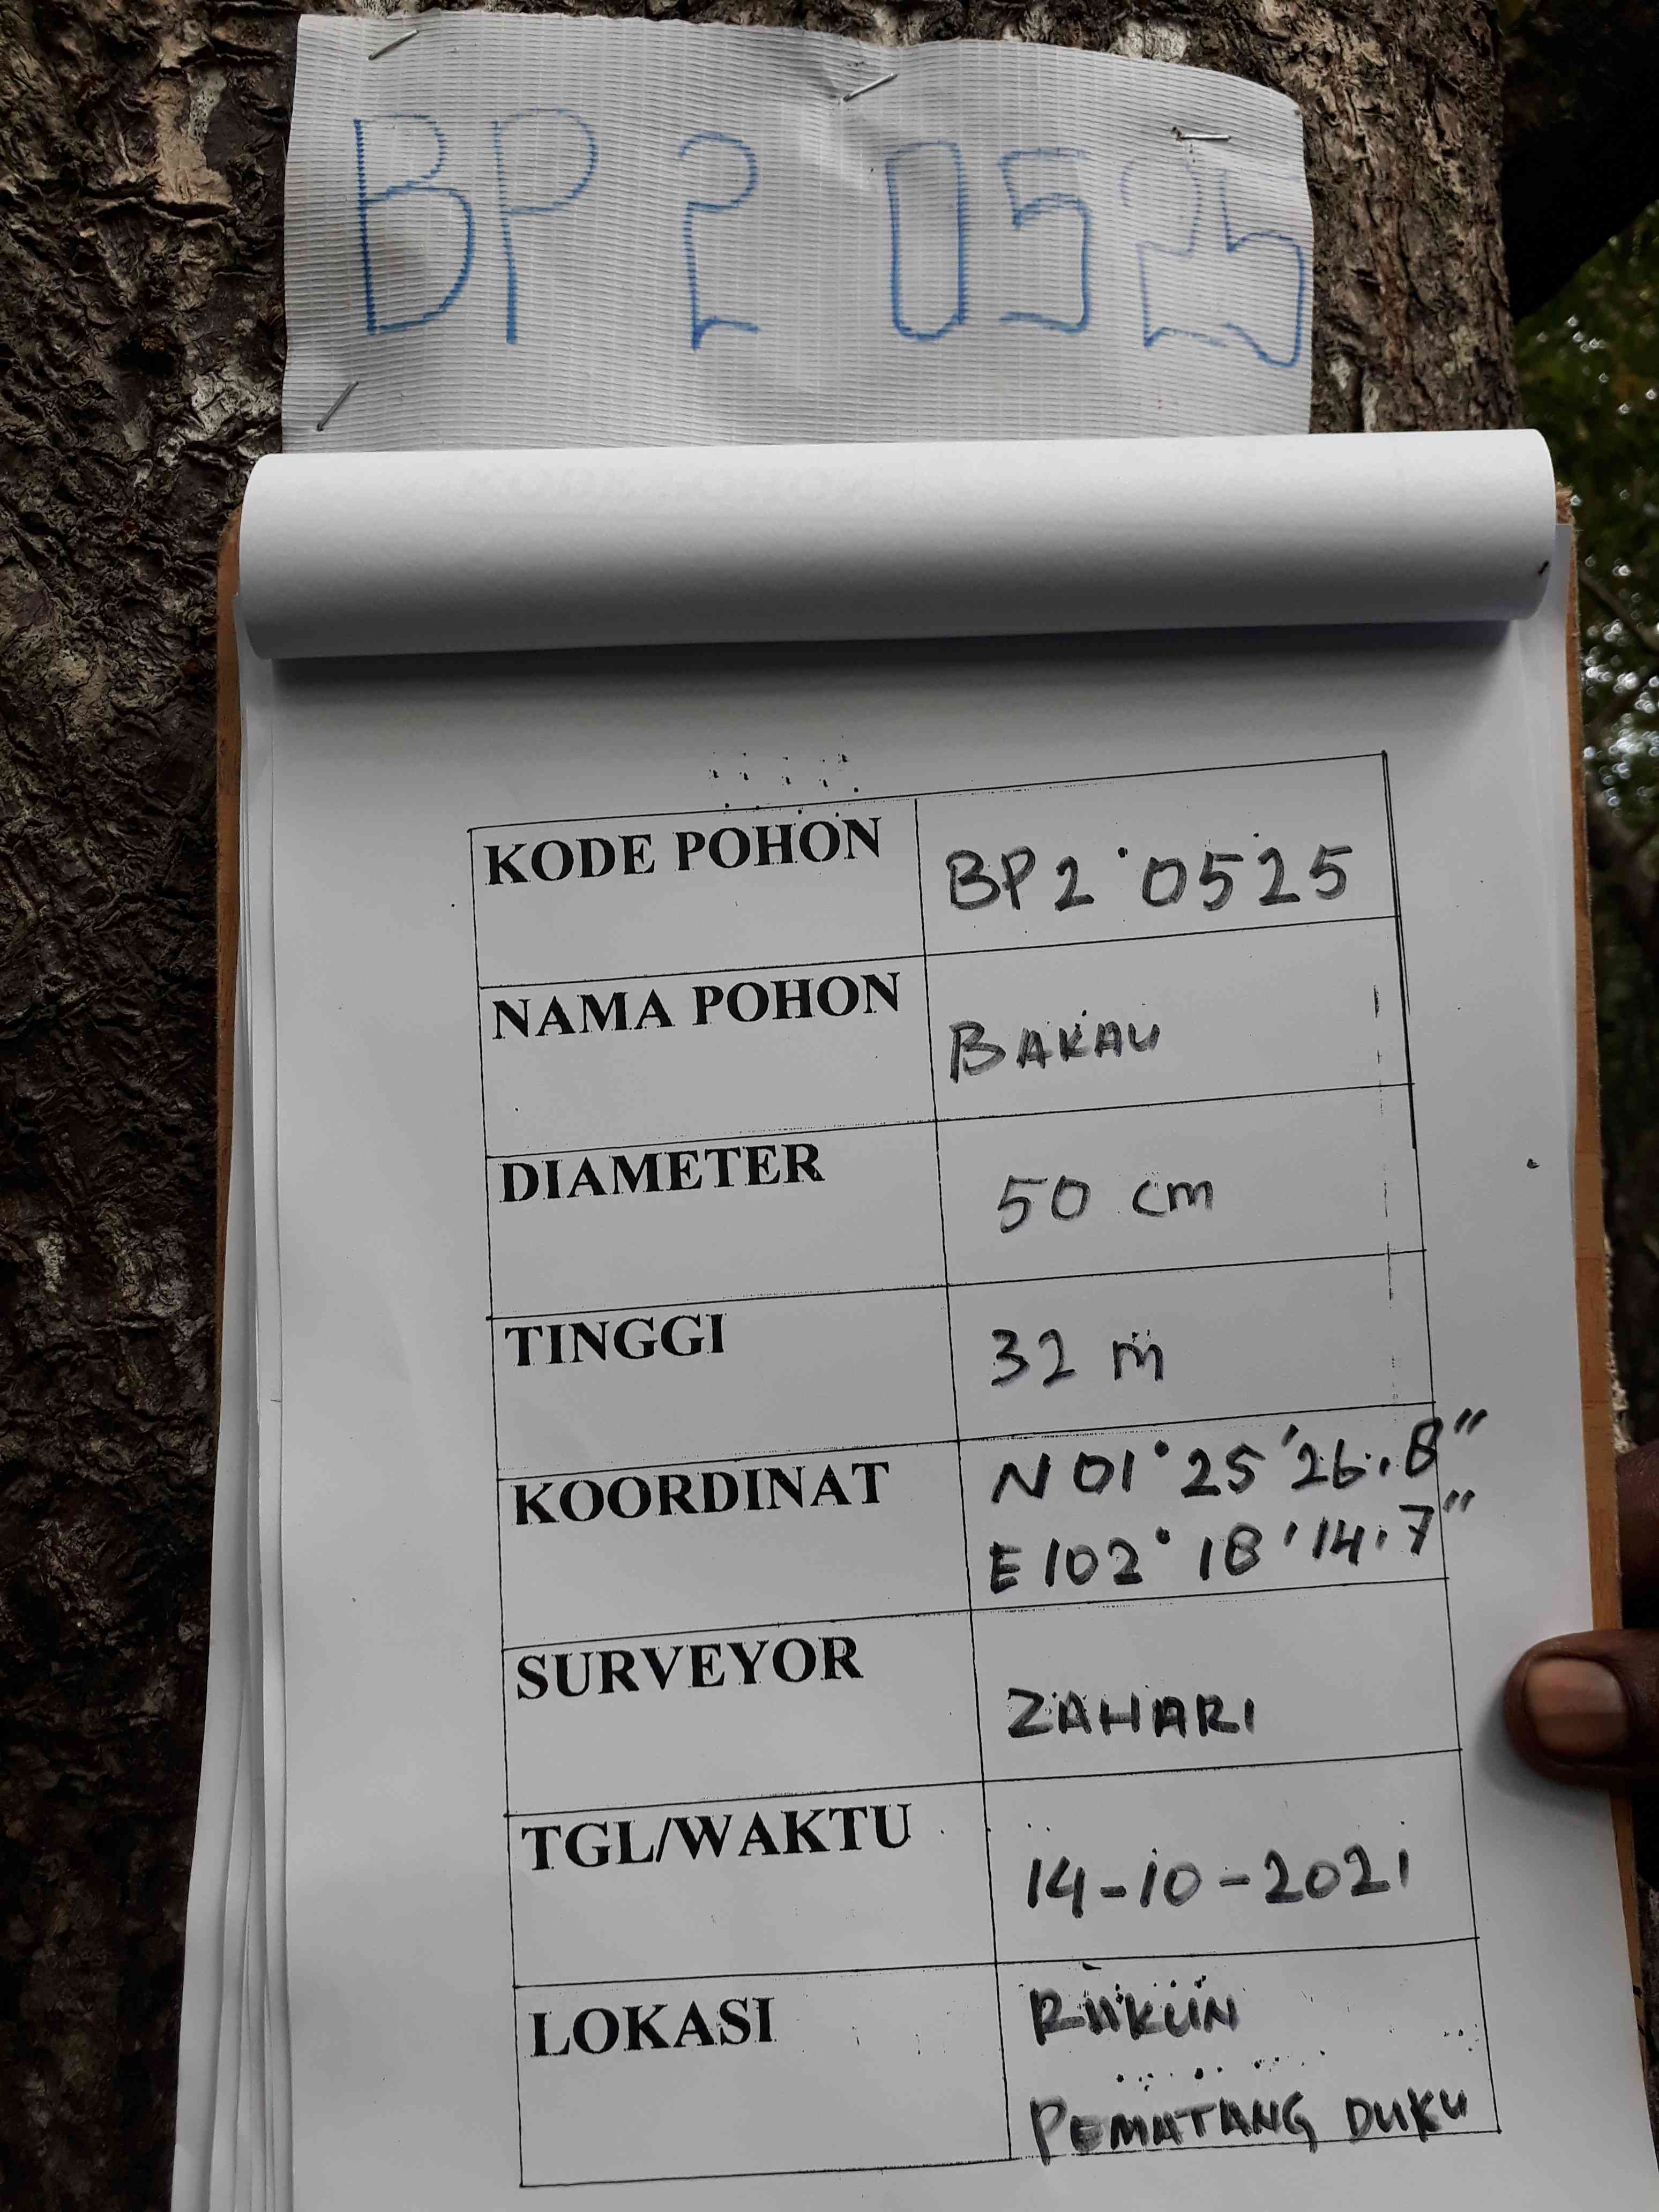 BP 2 0525
KODE POHON BP2 0525
NAMA POHON BAKAU
DIAMETER 50 cm
TINGGI 32 m
KOORDINAT N 01° 25' 26.8"
E 102° 18' 14.7"
SURVEYOR ZAHARI
TGL/WAKTU 14-10-2021
LOKASI RUKUN
PEMATANG DUKU